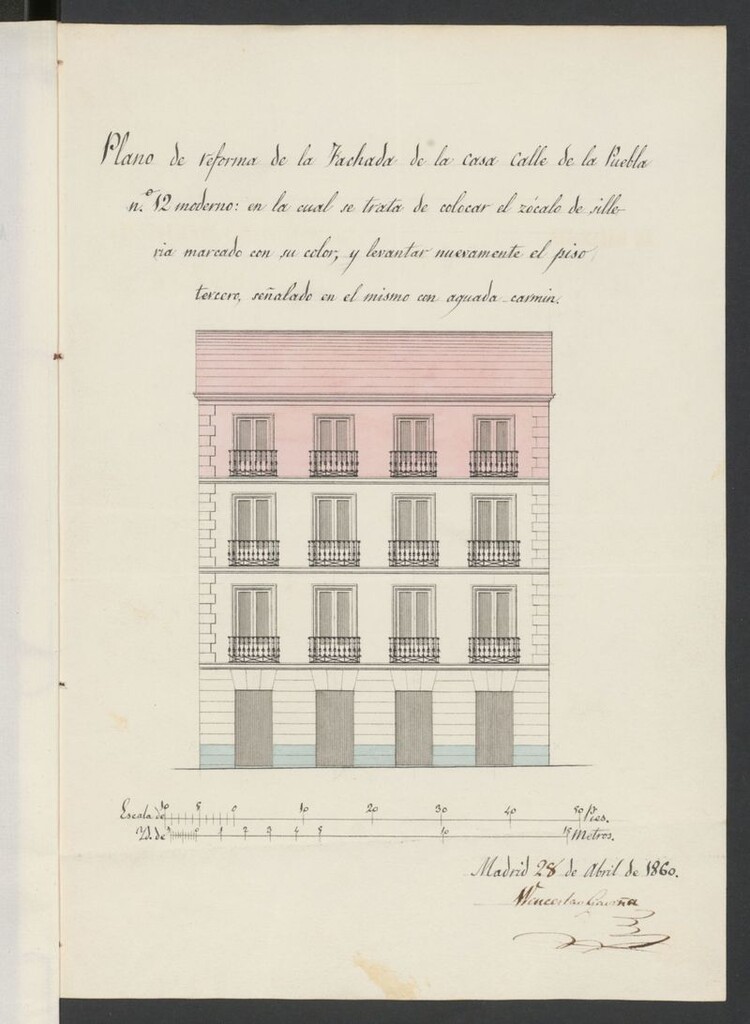 Plano de reforma de la Fachada de la casa calle de la Puebla
n.º 12 moderno: en la cual se trata de colocar el zócalo de sille-
ria marcado con su color, y levantar nuevamente el piso
tercero, señalado en el mismo con aguada carmin.
Escala de 10 5 0 10 20 30 40 50 Pies.
Yd. de 0 1 2 3 4 5 10 15 Metros.
Madrid 28 de Abril de 1860.
Wenceslao Gaviña